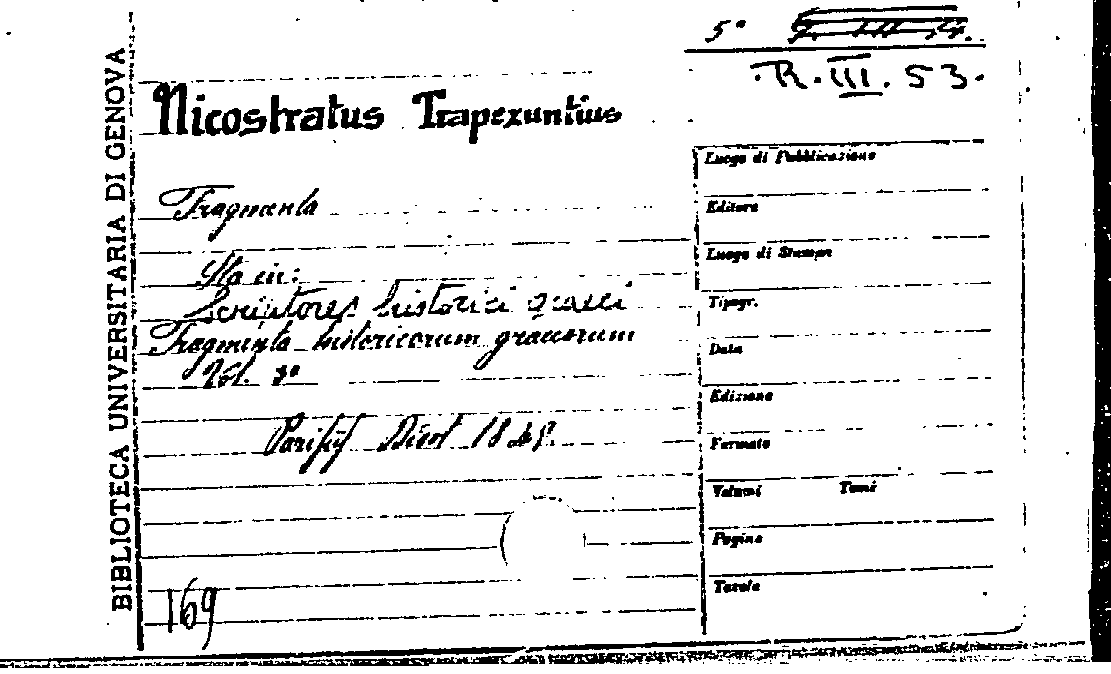 5°
.R.III.53.
Nicostratus Trapezuntius
Fragmenta
Sta in:
Scriptores historici graeci
Fragmenta historicorum graecorum
Vol. 3°
Parisiis Didot
169
BIBLIOTECA UNIVERSITARIA DI GENOVA
Luogo di Pubblicazione
Editore
Luogo di Stampa
Tipogr.
Data
Edizione
Formato
Volumi Tomi
Pagine
Tavole